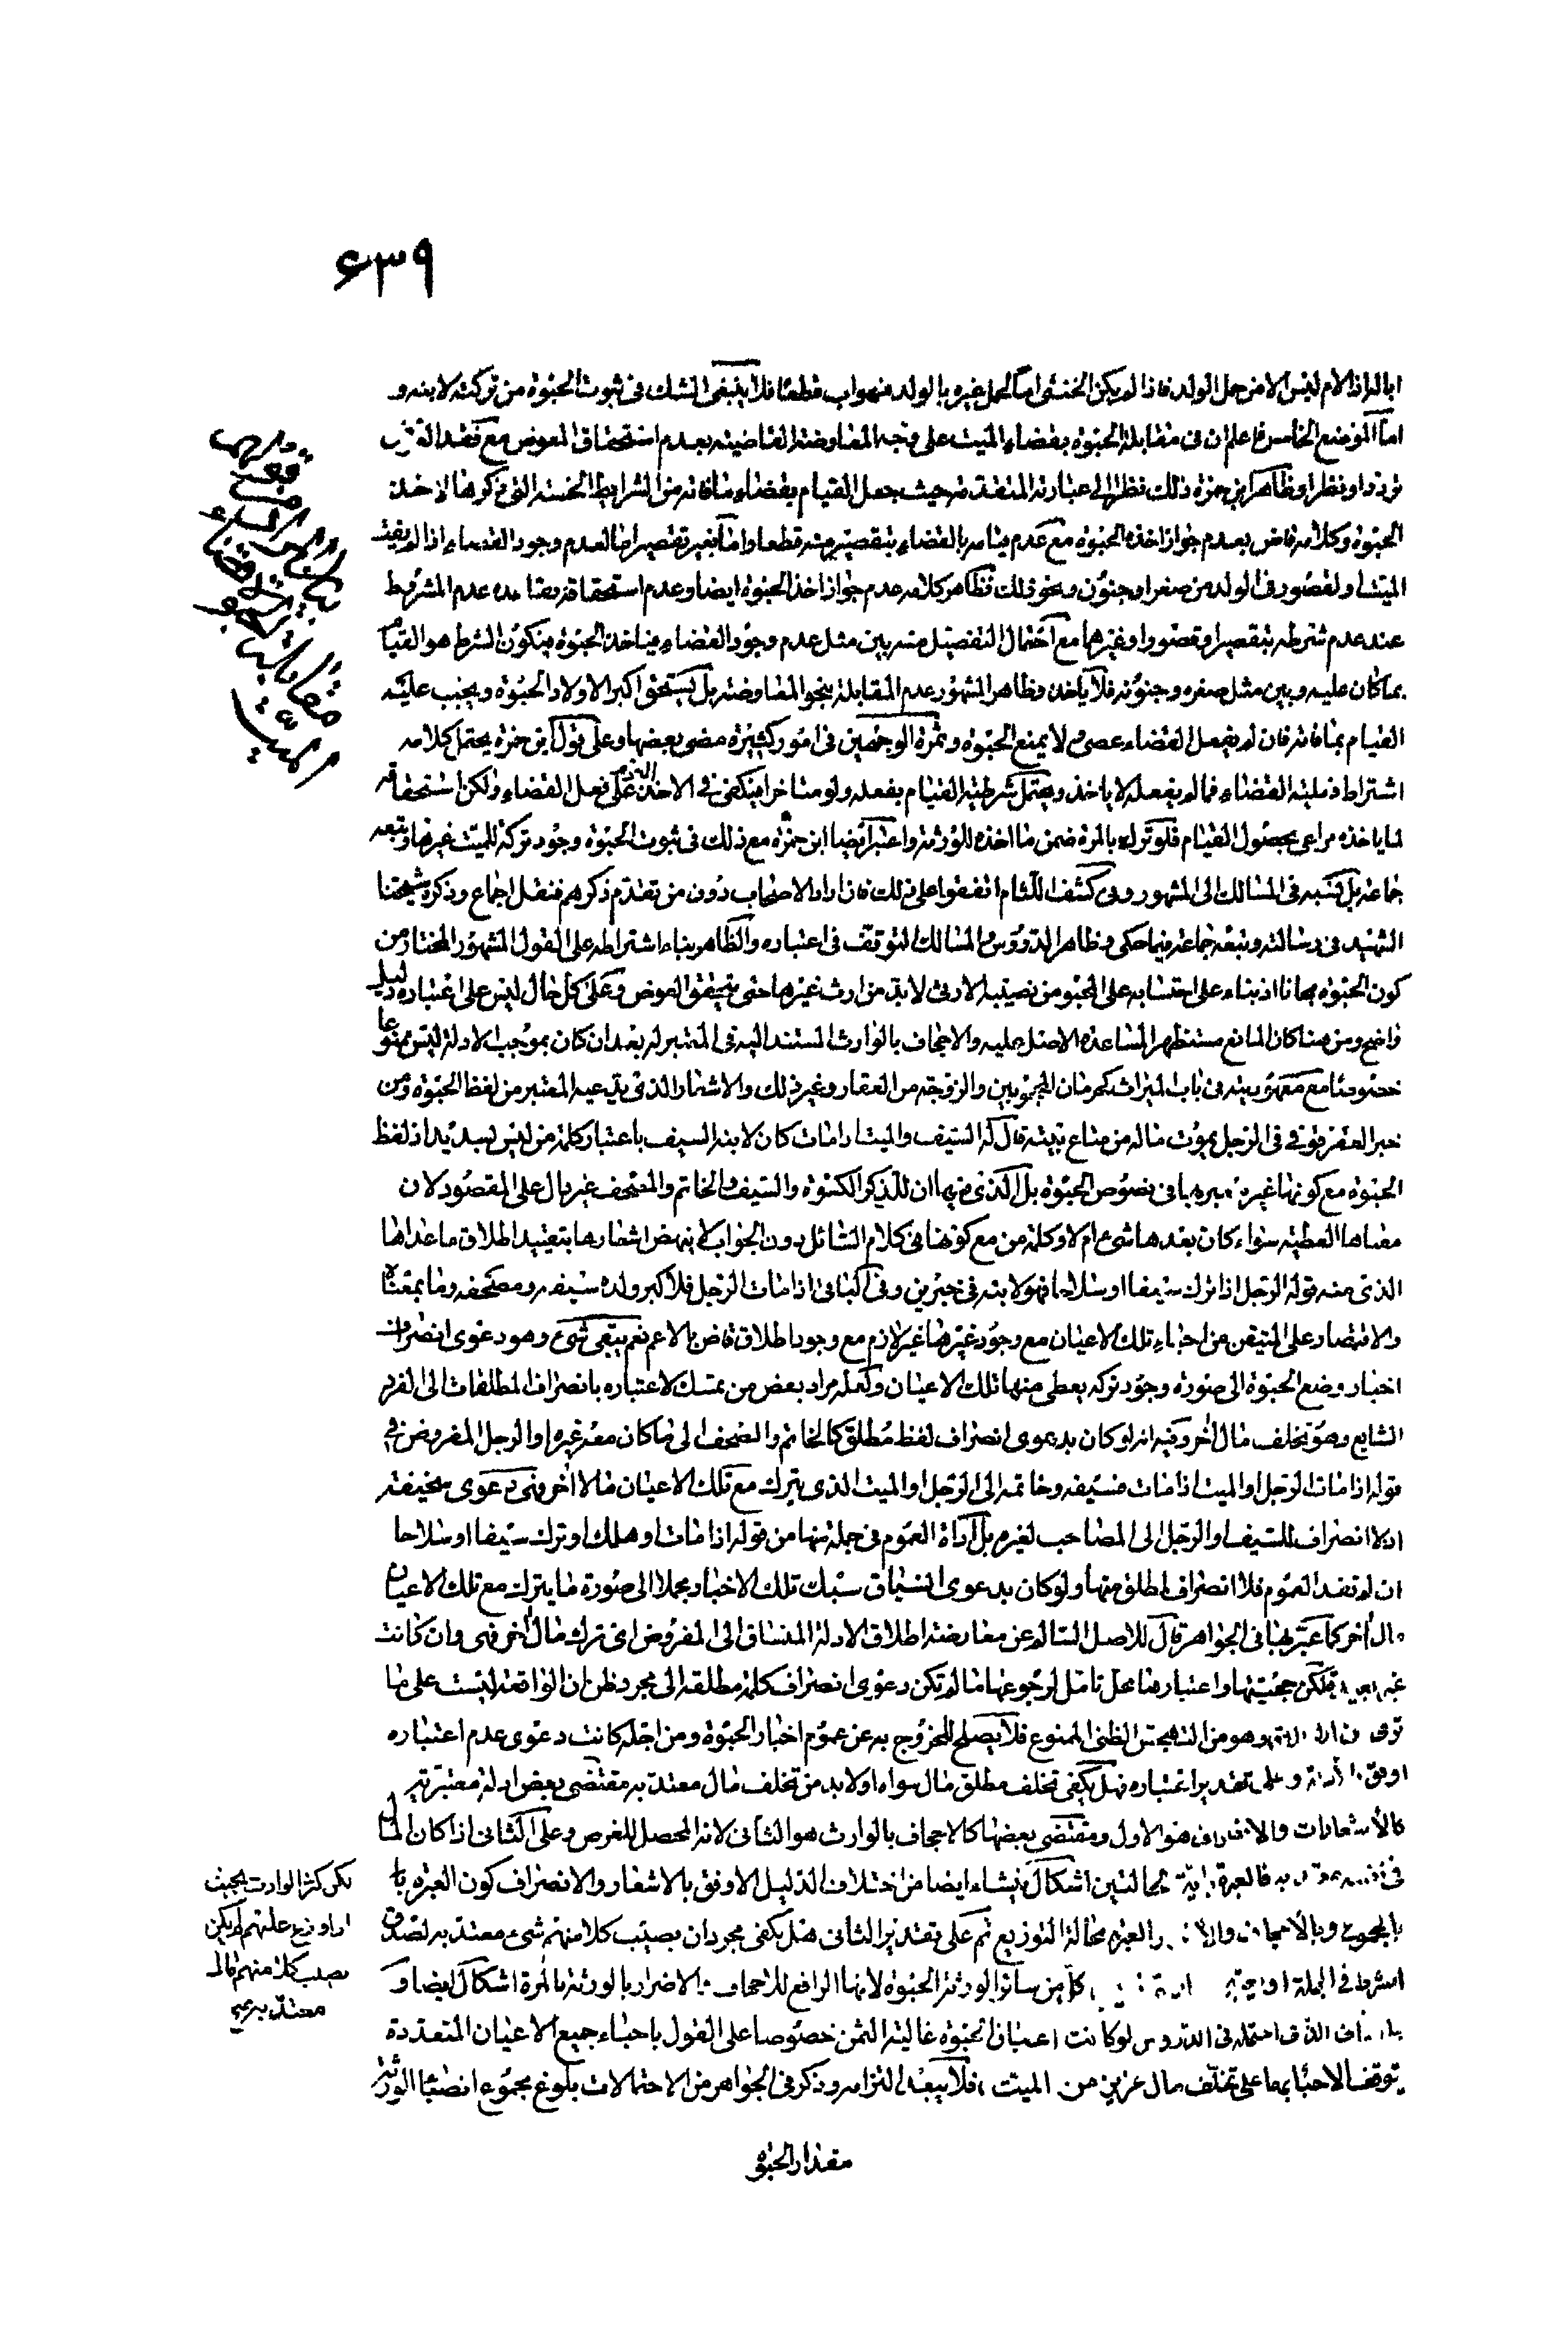 ٦٣٩
ابا له اذ الام ليس الا من حمل الولد فاذا لم يكن الخنثى اما لحمل غيره بالولد فهو اب قطعا فلا ينبغى الشك فى ثبوت الحبوة من تركته لابنه و
اما الموضع الخامس فاعلم ان فى مقابلة الحبوة بقضاء الميت على وجه المفاوضة القاضية بعدم استحقاق المعوض مع فقد
ترددا ونظرا وظاهر ابن حمزة ذلك نظرا الى عبارته المتقدمة حيث جعل القيام بقضاء ما فاته من الشرايط الخمسة التى ذكرها لاخذ
الحبوة وكلامه قاض بعدم جواز اخذه الحبوة مع عدم قيامه بالقضاء بتقصير منه قطعا واما بغير تقصير اما لعدم وجود القضاء اذا لم يفت
الميت او لقصور فى الولد من صغر او جنون ونحو ذلك فظاهر كلامه عدم جواز اخذ الحبوة ايضا وعدم استحقاقه بقاعدة عدم المشروط
عند عدم شرطه بتقصير او قصور او غيرها مع احتمال التفصيل منه بين مثل عدم وجود القضاء فياخذ الحبوة فيكون الشرط هو القيام
بما كان عليه وبين مثل صغره وجنونه فلا ياخذ وظاهر المشهور عدم المقابلة بنحو المفاوضة بل يستحق اكبر الاولاد الحبوة ويجب عليه
القيام بما فاته فان لم يفعل القضاء عصى ولا يمنع الحبوة وثمرة الوجهين فى امور كثيرة مضى بعضها وعلى قول ابن حمزة يحتمل كلامه
اشتراط فعلية القضاء فما لم يفعله لا ياخذ ويحتمل شرطية القيام بفعله ولو متاخرا فيكفى فى الاخذ العزم على فعل القضاء ولكن استحقاقه
لما ياخذه مراعى بحصول القيام فلو تركه بالمرة ضمن ما اخذه للورثة واعتبر ايضا ابن حمزة مع ذلك فى ثبوت الحبوة وجود تركة للميت غيرها وتبعه
جماعة بل نسبه فى المسالك الى المشهور وفى كشف اللثام اتفقوا على ذلك فان اراد الاصحاب دون من تقدم ذكرهم فنقل اجماع وذكره شيخنا
الشهيد فى رسالته وتبعه جماعة فيما حكى وظاهر الدروس والمسالك التوقف فى اعتباره والظاهر بناء اشتراطه على القول المشهور المختار من
كون الحبوة مجانا اذ بناء على احتسابه على المحبو من نصيبه الارثى لا بد من ارث غيرها حتى يتحقق العوض وعلى كل حال ليس على اعتباره دليل
واضح ومن هنا كان المانع مستظهرا لمساعدة الاصل عليه والاجحاف بالوارث المستند اليه فى المعتبر له بعد ان كان بموجب الادلة ليس ممنوعا
خصوصا مع معهوديته فى باب الميراث كحرمان المحجوبين والزوجة من العقار وغير ذلك والاشعار الذى يدعيه المعتبر من لفظ الحبوة ومن
خبر العقرقوفى فى الرجل يموت ماله من متاع بيته قال له السيف والميت اذا مات كان لابنه السيف باعتبار كلمة من ليس بسديد اذ لفظ
الحبوة مع كونها غير معبر بها فى نصوص الحبوة بل الذى فيها ان للذكر الكسوة والسيف والخاتم والمصحف غير دال على المقصود لان
معناها العطية سواء كان بعدها شىء ام لا وكلمة من مع كونها فى كلام السائل دون الجواب لا ينهض اشعارها بتقييد اطلاق ما عداها
الذى منه قوله الرجل اذا ترك سيفا او سلاحا فهو لابنه فى خبرين وفى الباقى اذا مات الرجل فلاكبر ولده سيفه ومصحفه وما بمعناه
والاقتصار على المتيقن من احباء تلك الاعيان مع وجود غيرها غير لازم مع وجود اطلاق قاض بالاعم نعم يبقى شىء وهو دعوى انصراف
اخبار وضع الحبوة الى صورة وجود تركة يعطى منها تلك الاعيان ولعله مراد بعض من تمسك لاعتباره بانصراف المطلقات الى الفرد
الشايع وهو تخلف مال آخر وفيه انه لو كان بدعوى انصراف لفظ مطلق كالخاتم والمصحف الى ما كان معه غيره او الرجل المفروض فى
قوله اذا مات الرجل او الميت اذا مات فسيفه وخاتمه الى الرجل او الميت الذى يترك مع تلك الاعيان مالا آخر فهى دعوى سخيفة
اذ لا انصراف للسيف او الرجل الى المصاحب لغيره بل اداة العموم فى جملة منها من قوله اذا مات او هلك او ترك سيفا او سلاحا
ان لم تفد العموم فلا انصراف لمطلق منها ولو كان بدعوى انسياق سبك تلك الاخبار مجملا الى صورة ما يترك مع تلك الاعيان
مال آخر كما عبر بها فى الجواهر قال للاصل السالم عن معارضة اطلاق الادلة المنساق الى المفروض اى ترك مال آخر فهى وان كانت
غير بعيدة لكن حجيتها واعتبارها محل تامل لرجوعها ما لم تكن دعوى انصراف كلمة مطلقة الى مجرد ظن ان الواقعة ليست على ما
وهو من التهجس الظنى الممنوع فلا يصلح للخروج به عن عموم اخبار الحبوة ومن اجله كانت دعوى عدم اعتباره
اوفق وعلى تقدير اعتباره فهل يكفى تخلف مطلق مال سواه او لا بد من تخلف مال معتد به مقتضى بعض ادلة معتبريه
كالاشعارات والانصراف هو الاول ومقتضى بعضها كالاجحاف بالوارث هو الثانى لانه المحصل للغرض وعلى الثانى اذا كان المال
فى نفسه معتد به فالعبرة باية الحالتين اشكال ينشاء ايضا من اختلاف الدليل الاوفق بالاشعار والانصراف كون العبرة بالـ
بالمجموع وبالاجحاف العبرة بحالة التوزيع ثم على تقدير الثانى هل يكفى مجرد ان يصيب كلا منهم شىء معتد به لصدق
الشرط فى الجملة او كلا من سائر الورثة الحبوة لانها الرافع للاجحاف والاضرار بالورثة بالمرة اشكال ايضا و
احتمله فى الدروس لو كانت اعيان الحبوة غالية الثمن خصوصا على القول باحباء جميع الاعيان المتعددة
توقف الاحباء بها على تخلف مال عزيز من الميت فلا يبعد التزامه وذكر فى الجواهر من الاحتمالات بلوغ مجموع انصباء الورثة
لكن كثر الوارث بحيث
لو وزع عليهم لم يكن
يصيب كلا منهم مال
معتد به
مقدار الحبوة